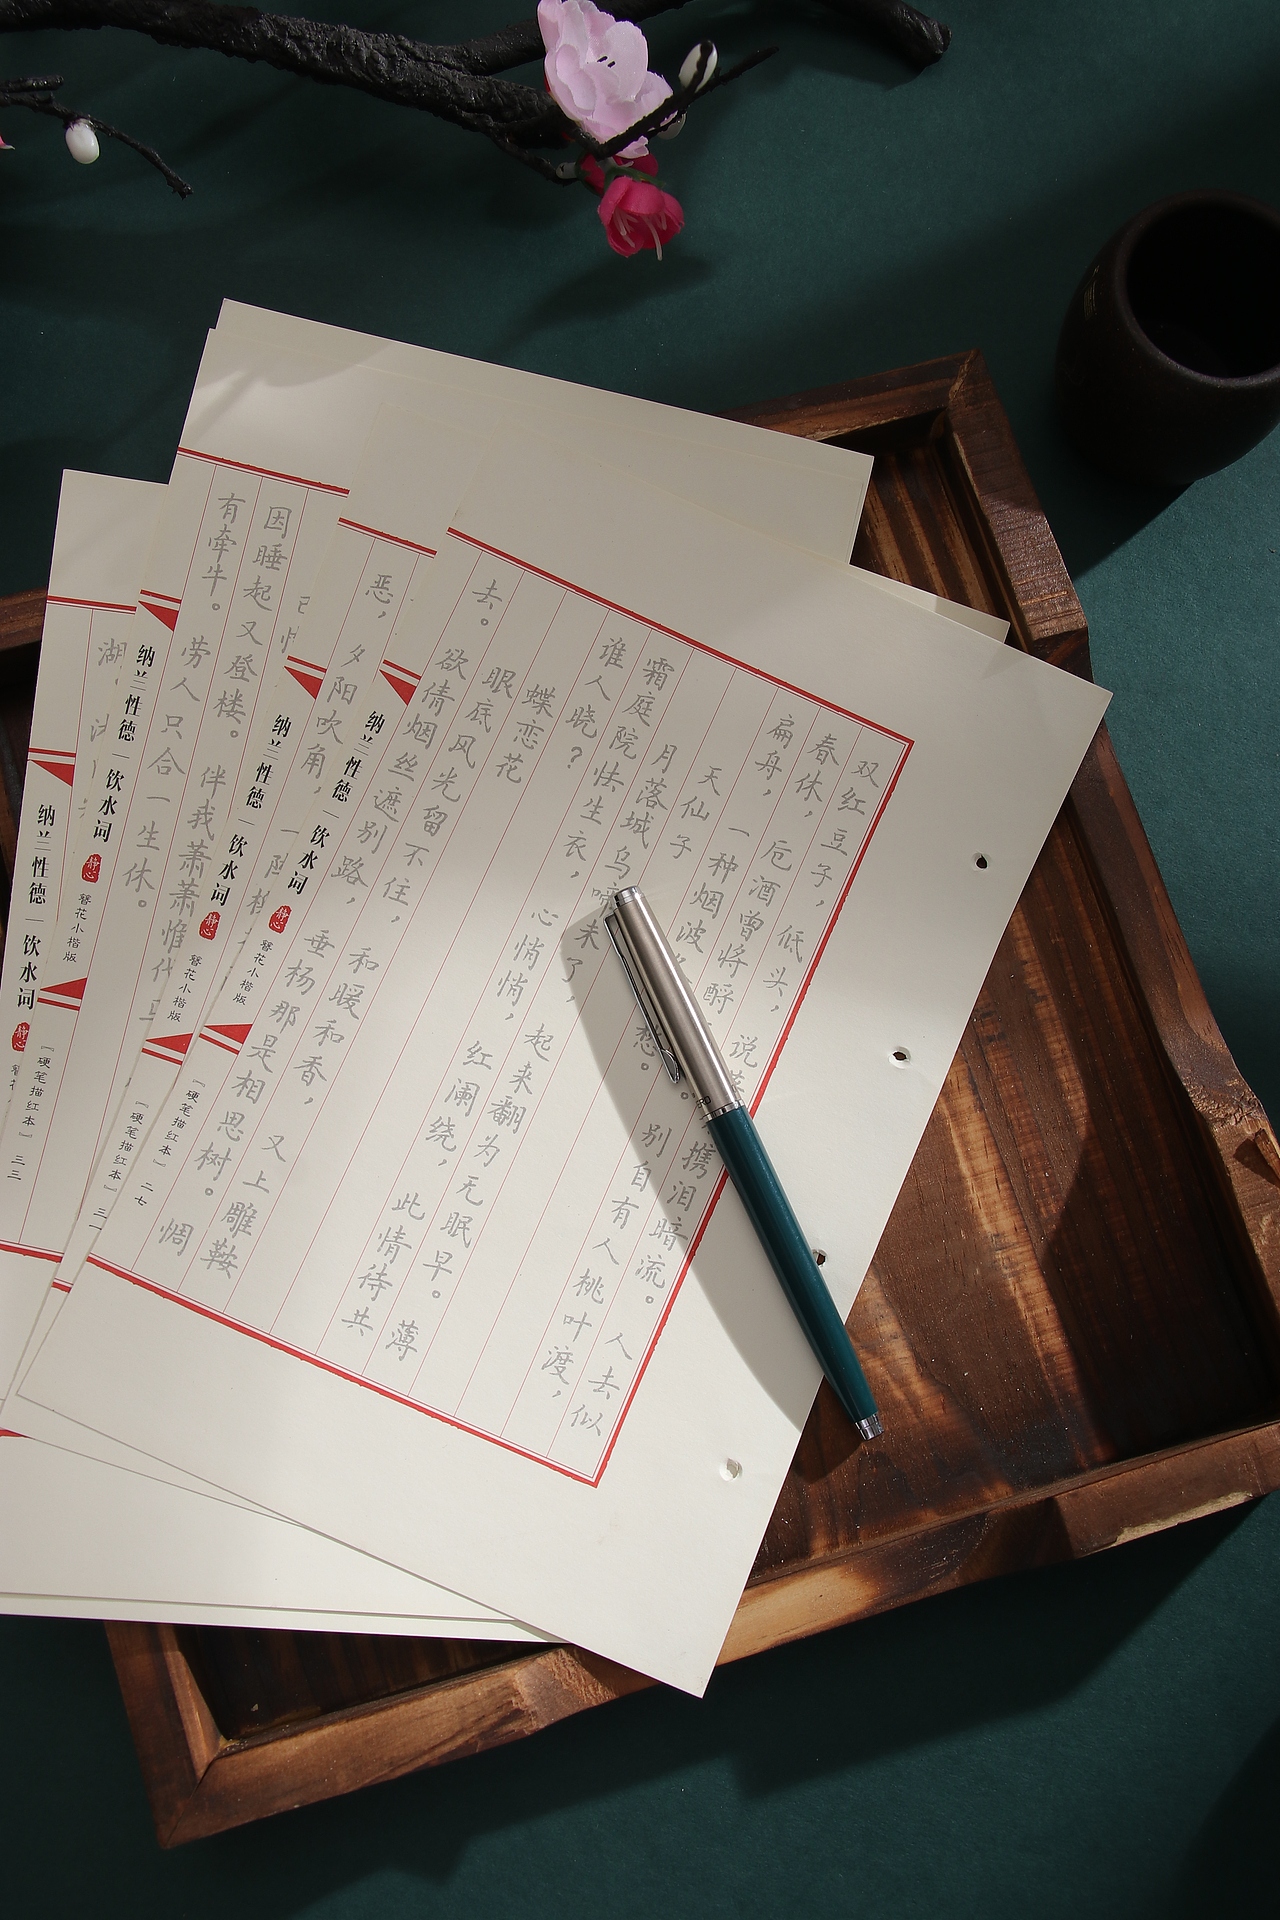 双红豆子,低头,说携泪暗流。人去似
春休,卮酒曾将酹别自有人桃叶渡,
扁舟,一种烟波愁。
天仙子
月落城乌啼未了,起来翻为无眠早。薄
霜庭院怯生衣,心悄悄,红阑绕,此情待共
谁人晓?
蝶恋花
眼底风光留不住,和暖和香,又上雕鞍
去。欲倩烟丝遮别路,垂杨那是相思树。惆
纳兰性德|饮水词 静心 簪花小楷版
【硬笔描红本】 二七
恶,夕阳吹角,一
纳兰性德|饮水词 静心 簪花小楷版
【硬笔描红本】 三一
因睡起又登楼。伴我萧萧惟代
有牵牛。劳人只合一生休。
纳兰性德|饮水词 静心 簪花小楷版
【硬笔描红本】 三三
湖
纳兰性德|饮水词 静心 簪花